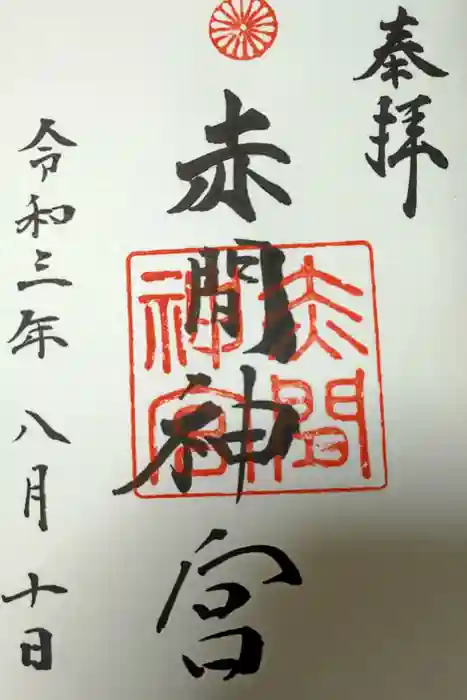 奉拝
赤間神宮
赤間
神宮
令和三年八月十日